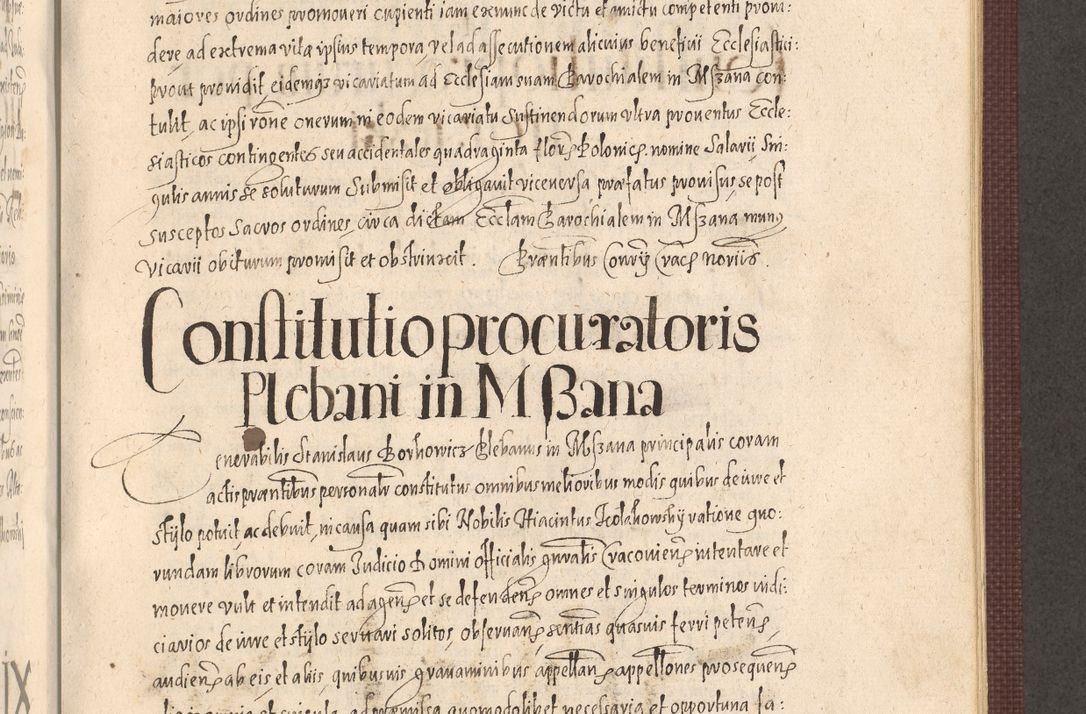 maiores ordines promoveri cupienti iam exnunc de victu et amictu competenti provi:
dere ad extrema vitæ ipsius tempora, vel ad assecutionem alicuius beneficii Ecclesiastici:
prout providit, eidemq3 vicariatum ad Ecclesiam suam Parochialem in Mszana con:
tulit, ac ipsi rõne onerum in eodem vicariatu sustinendorum ultra proventus Eccle:
siasticos contingentes seu accidentales quadraginta flor: Polonic: nomine Salarii Sin:
gulis annis se soluturum Submisit et obligavit viceversa præfatus provisus, se post
susceptos Sacros ordines, circa dictam Ecclam Parochialem in Mszana munus
vicarii obiturum promisit et obstrinxit. Præntibus
Constitutio procuratoris
Plebani in M Szana
Venerabilis Stanislaus Borhowicz Plebanus in Mszana principalis coram
actis præntibus personalr constitutus omnibus melioribus modis quibus de iure et
stÿlo potuit, ac debuit, in causa quam sibi Nobilis Hiacintus ratione quo:
rundam librorum coram Iudicio Domini officialis gnralis Cracovien: intentare et
movere vult et intendit ad agen: et se defenden: omnes et singulos terminos iudi:
ciarios de iure et stÿlo servari solitos, observan: sentias quasvis ferri peten:,
audien: ab eis et aliis, quibusvis gravaminibus appellan: appellones prosequen:
omnia et singula ad præmissa quomodolibet necessaria et opportuna fa: